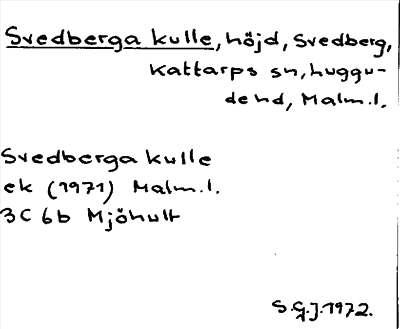 Svedberga kulle, höjd, Svedberg,
Kattarps sn, Luggu-
de hd, Malm.l.
Svedberga kulle
ek (1971) Malm.l.
3C 6b Mjöhult
S.G.J. 1972.